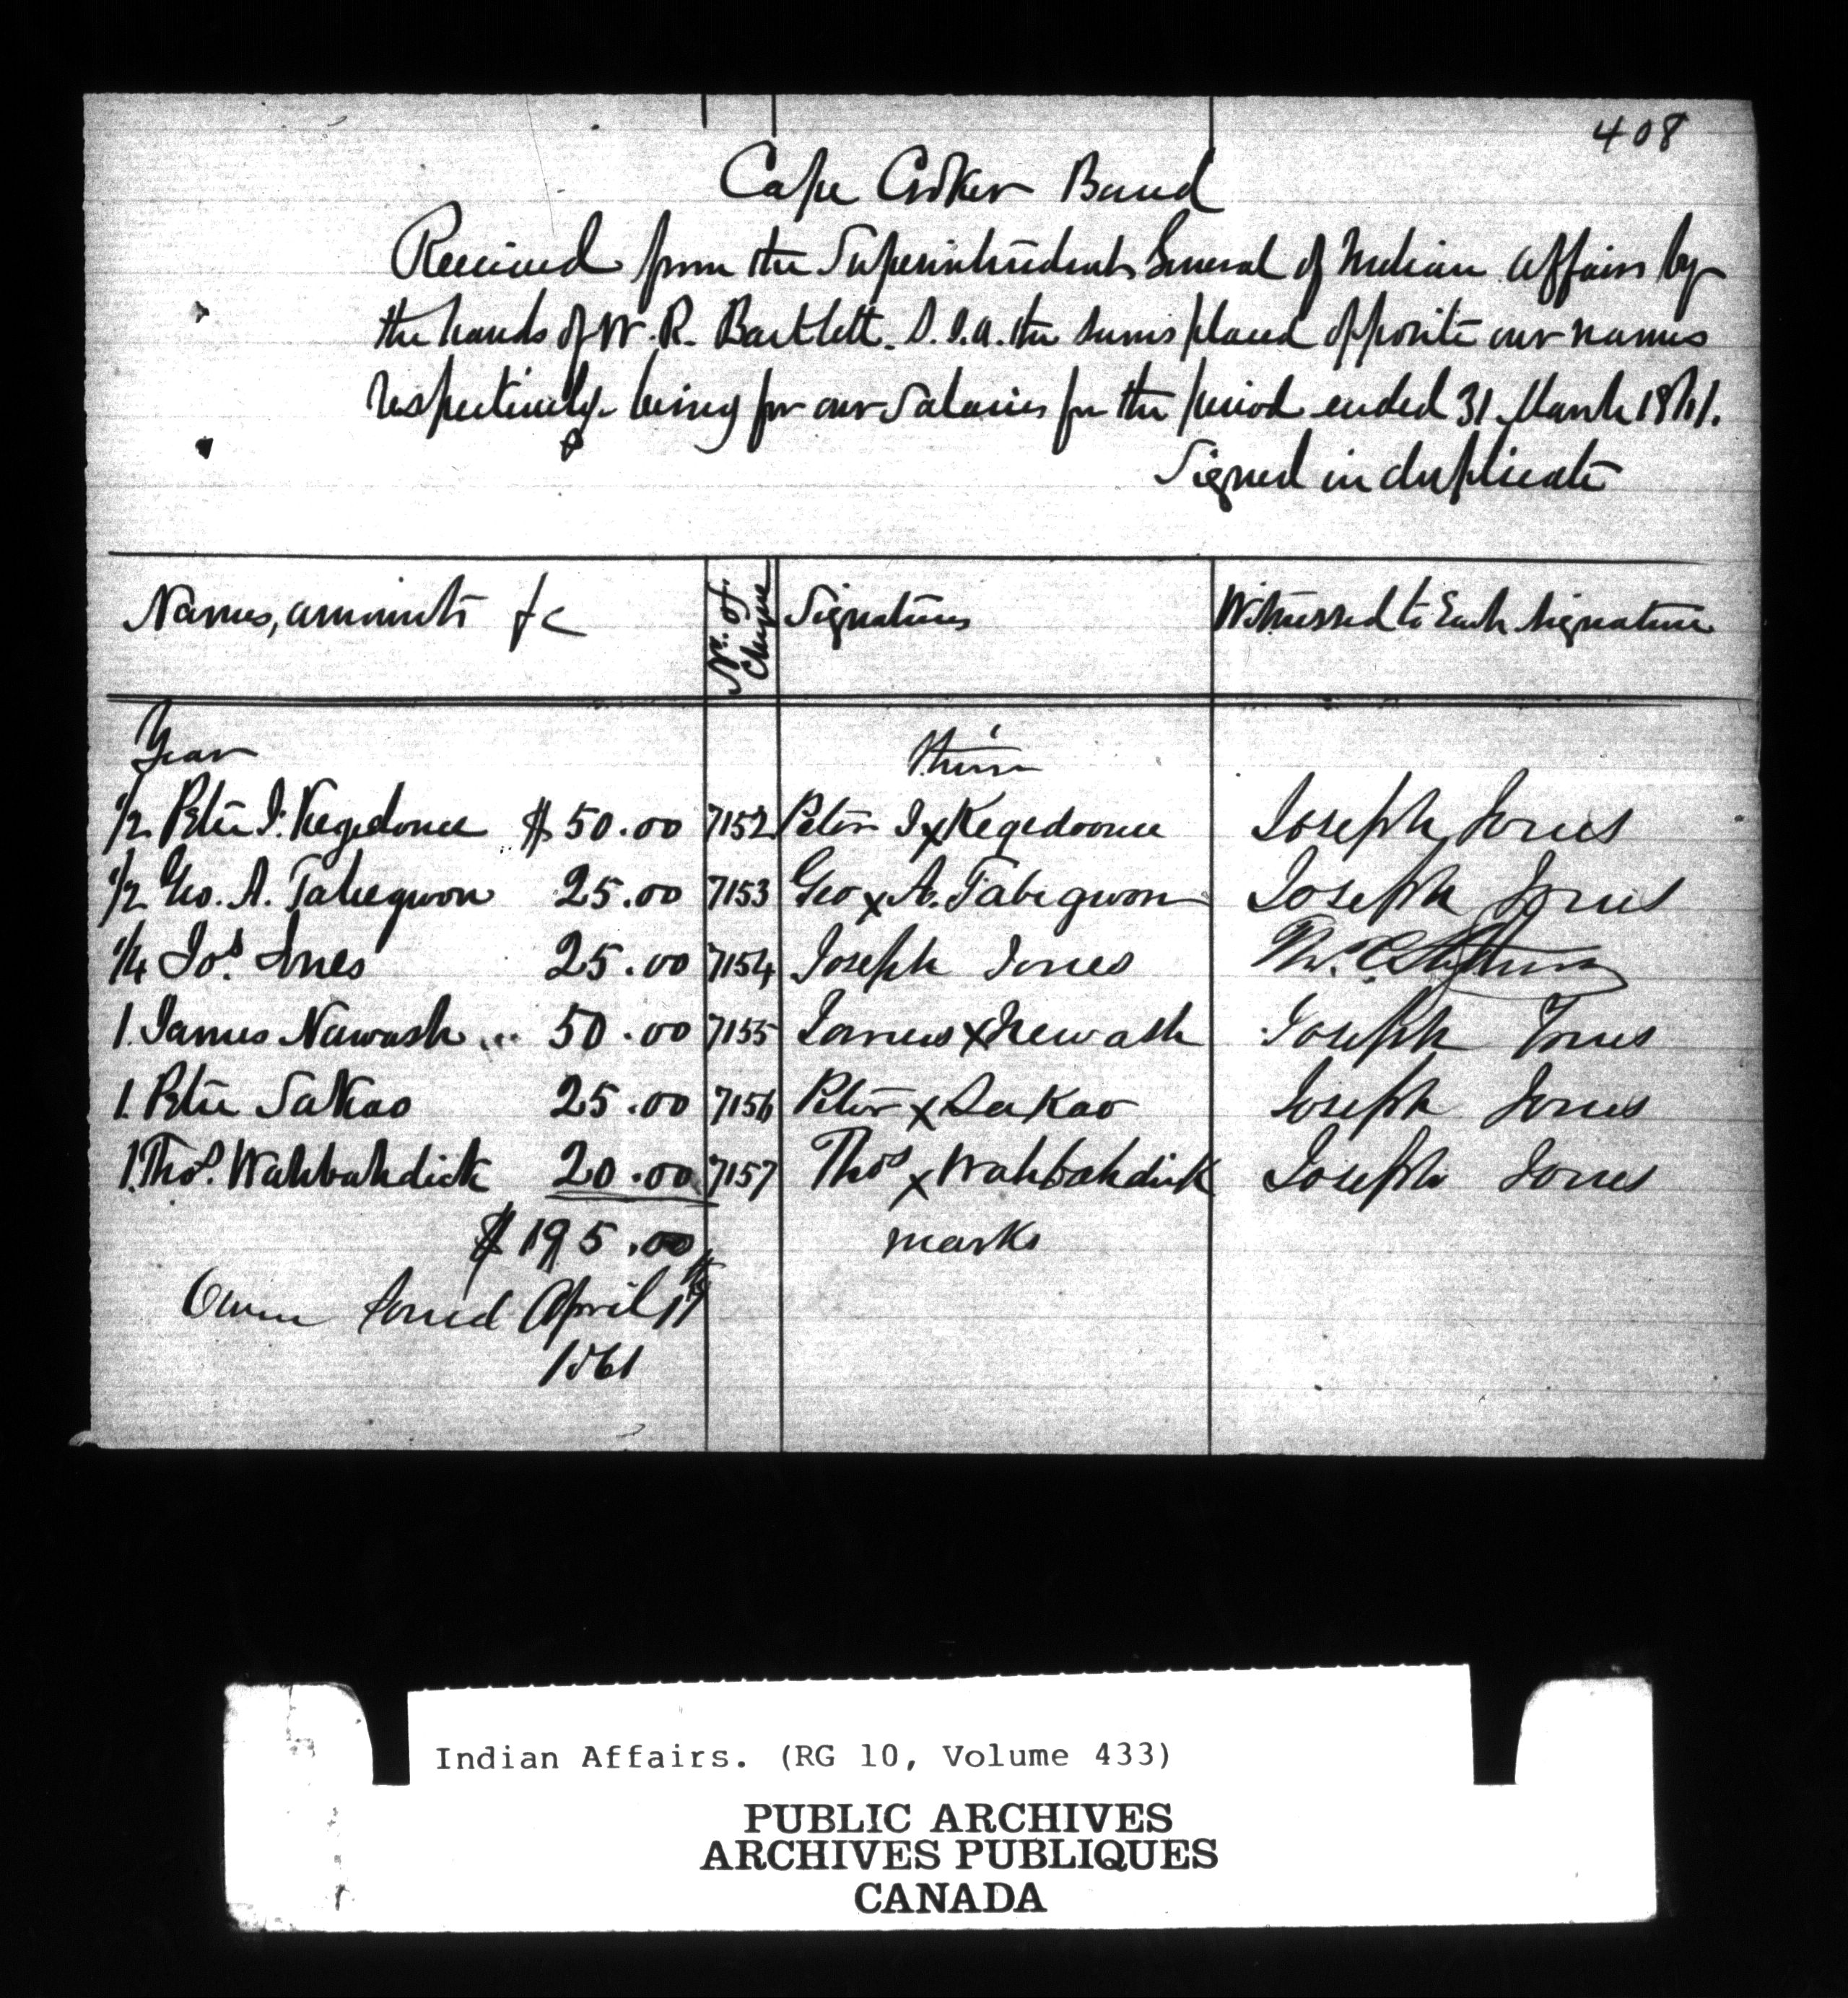 408
Cape Croker Band
Received from the Superintendent General of Indian Affairs by
the hands of W. R. Bartlett. S.I.A. the sums placed opposite our names
respectively being for our Salaries for the period ended 31 March 1861.
Signed in duplicate
Names, amounts &c No. of Cheque Signatures Witnessed to Each Signature
Year Their
1/2 Peter J. Kegedonce $ 50.00 7152 Peter J x Kegedoonce Joseph Jones
1/2 Geo. A. Tabegwon 25.00 7153 Geo x A. Tabegwon Joseph Jones
1/4 Jos. Jones 25.00 7154 Joseph Jones
1. James Nawash 50.00 7155 James x Newash Joseph Jones
1. Peter SaKao 25.00 7156 Peter x SaKao Joseph Jones
1. Thos. Wahbahdick 20.00 7157 Thos x Wahbahdick Joseph Jones
$ 195.00 marks
Owen Sound April 17th
1861
Indian Affairs. (RG 10, Volume 433)
PUBLIC ARCHIVES
ARCHIVES PUBLIQUES
CANADA